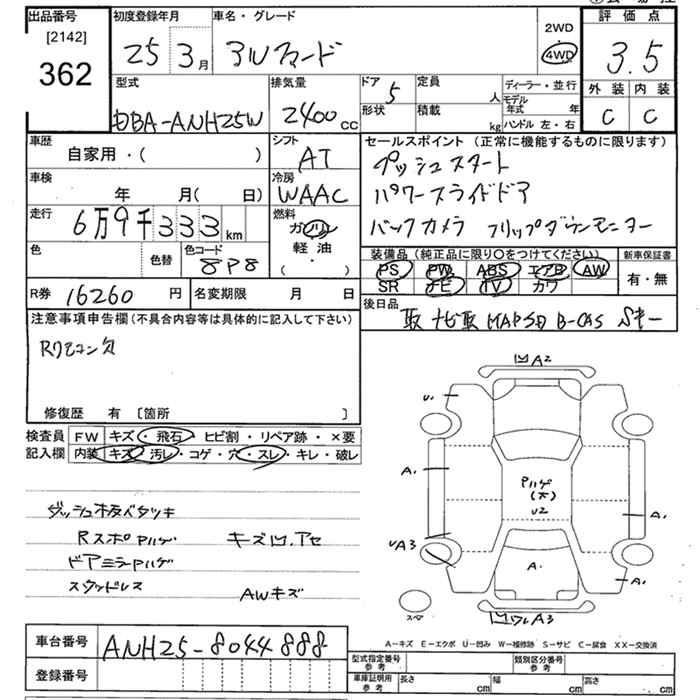 出品番号
[2142]
362
初度登録年月
25 3月
車名・グレード
アルファード
2WD
4WD
評価点
3.5
外装 内装
C C
型式
DBA-ANH25W
排気量
2400cc
ドア 5
形状
定員 人
積載 kg
ディーラー・並行
モデル年式 年
ハンドル 左・右
車歴
自家用・( )
シフト
AT
セールスポイント (正常に機能するものに限ります)
プッシュスタート
パワースライドドア
バックカメラ フリップダウンモニター
車検
年 月( 日)
冷房
WAAC
走行
6万9千333km
燃料
ガソリン
軽油
( ・ )
色
色替
色コード
8P8
装備品 (純正品に限り○をつけてください)
PS PW ABS エアB AW
SR ナビ TV カワ
新車保証書
有・無
R券 16260 円
名変期限 月 日
後日品
取 ナビ取 MAPSD B-CAS Sキー
注意事項申告欄 (不具合内容等は具体的に記入して下さい)
Rリモコン欠
修復歴 有 [箇所 ]
検査員記入欄
FW キズ・飛石・ヒビ割・リペア跡・×要
内装 キズ・汚レ・コゲ・穴・スレ・キレ・破レ
ダッシュ板ベタツキ
Rスポ Pハゲ キズ凹.アセ
ドアミラーPハゲ
スタッドレス AWキズ
凹A2
U.
A.
Pハゲ
(大)
U2
A.
UA3
A.
A.
スペア
凹ワレA3
A-キズ E-エクボ U-凹み W-補修跡 S-サビ C-腐食 XX-交換済
車台番号 ANH25-8044888
登録番号
型式指定番号 参考
類別区分番号 参考
車庫証明用 参考
長さ cm
幅 cm
高さ cm